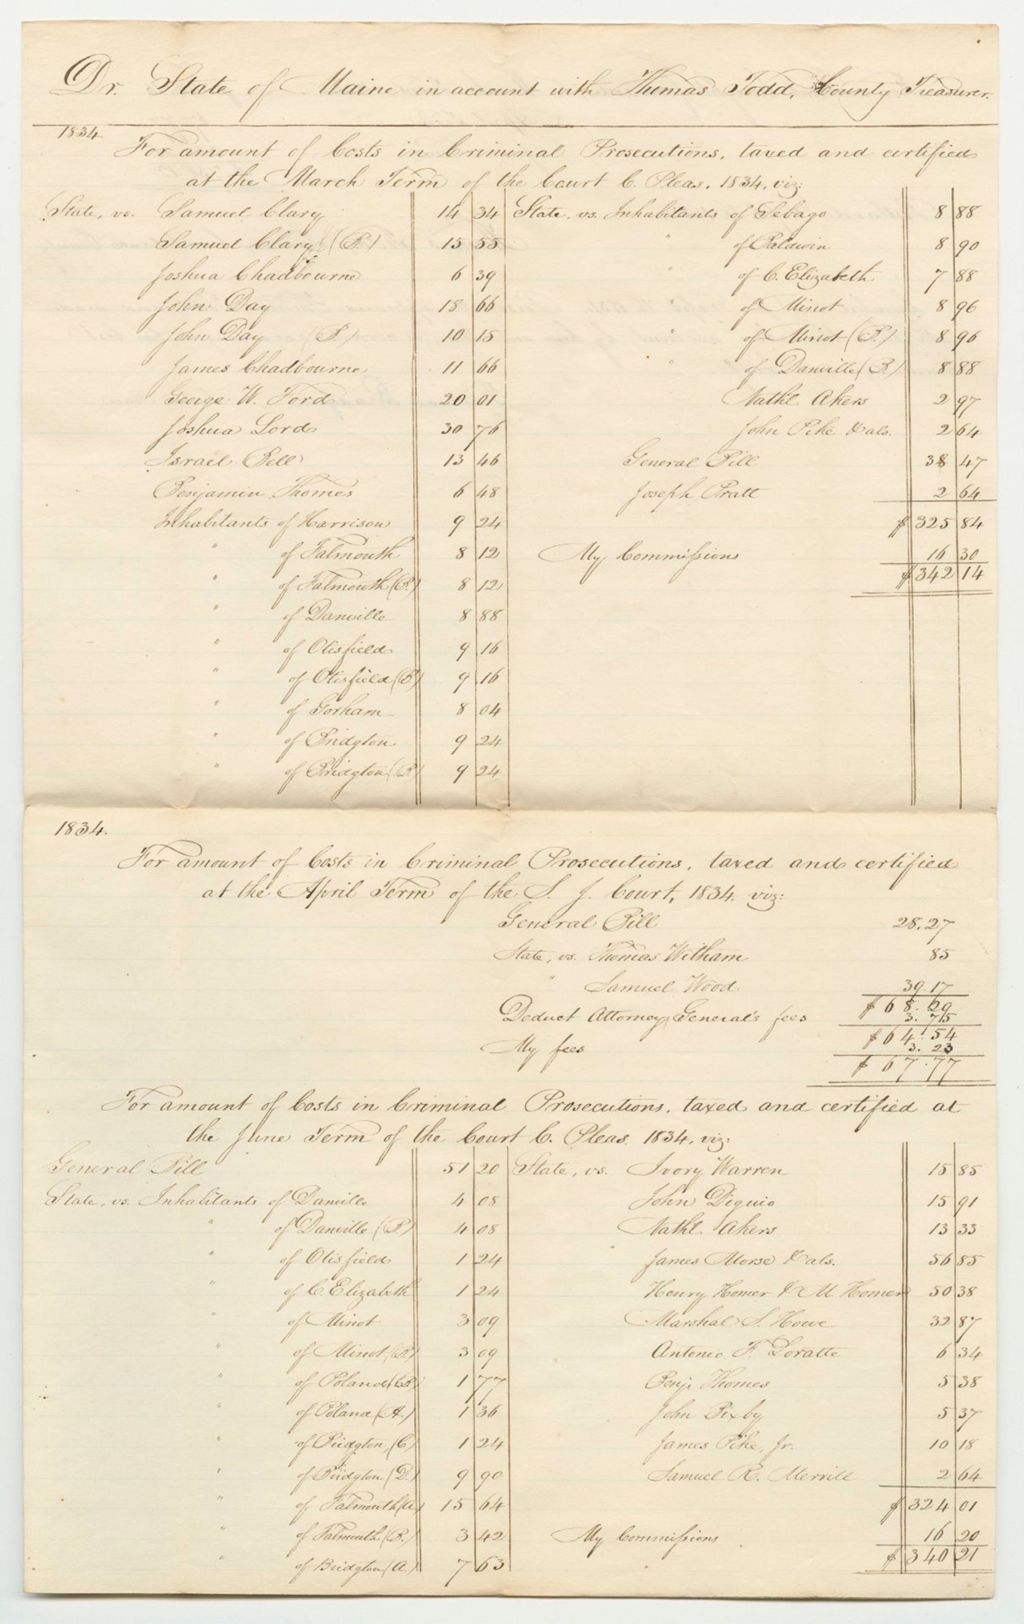 Dr. State of Maine in account with Thomas Todd, County Treasurer.
1834.
For amount of Costs in Criminal Prosecutions, taxed and certified
at the March Term of the Court C. Pleas, 1834, viz:
State, vs. Samuel Clary 14 34
Samuel Clary (B.) 15 55
Joshua Chadbourne 6 39
John Day 18 66
John Day (B.) 10 15
James Chadbourne 11 66
George W. Ford 20 01
Joshua Lord 30 76
Israel Bell 13 46
Benjamin Thomes 6 48
Inhabitants of Harrison 9 24
" of Falmouth 8 12
" of Falmouth (B.) 8 12
" of Danville 8 88
" of Otisfield 9 16
" of Otisfield (B) 9 16
" of Gorham 8 04
" of Bridgton 9 24
" of Bridgton (B) 9 24
State, vs. Inhabitants of Sebago 8 88
" of Baldwin 8 90
" of C. Elizabeth 7 88
" of Minot 8 96
" of Minot (B.) 8 96
" of Danville (B.) 8 88
Nathl. Akers 2 97
John Pike & als. 2 64
General Bill 38 47
Joseph Pratt 2 64
$ 325 84
My Commissions 16 30
$ 342 14
1834.
For amount of Costs in Criminal Prosecutions, taxed and certified
at the April Term of the S. J. Court, 1834, viz:
General Bill 28.27
State, vs. Thomas Witham 85
" Samuel Wood 39.17
$ 68.29
Deduct Attorney General's fees 3.75
$ 64.54
My fees 3.23
$ 67.77
For amount of Costs in Criminal Prosecutions, taxed and certified at
the June Term of the Court C. Pleas, 1834, viz:
General Bill 51 20
State, vs. Inhabitants of Danville 4 08
" of Danville (B.) 4 08
" of Otisfield 1 24
" of C. Elizabeth 1 24
" of Minot 3 09
" of Minot (B.) 3 09
" of Poland (B.) 1 77
" of Poland (A.) 1 36
" of Bridgton (C.) 1 24
" of Bridgton (D.) 9 90
" of Falmouth (A.) 15 64
" of Falmouth (B.) 3 42
" of Bridgton (A.) 7 63
State, vs. Ivory Warren 15 85
John Diguio 15 91
Nathl. Akers 13 33
James Morse & als. 56 85
Henry Homer & M Homer 50 38
Marshal S. Howe 32 87
Antonio F. Loratte 6 34
Benj. Thomes 5 38
John Bixby 5 37
James Pike, Jr. 10 18
Samuel R. Merrill 2 64
$ 324 01
My Commissions 16 20
$ 340 21